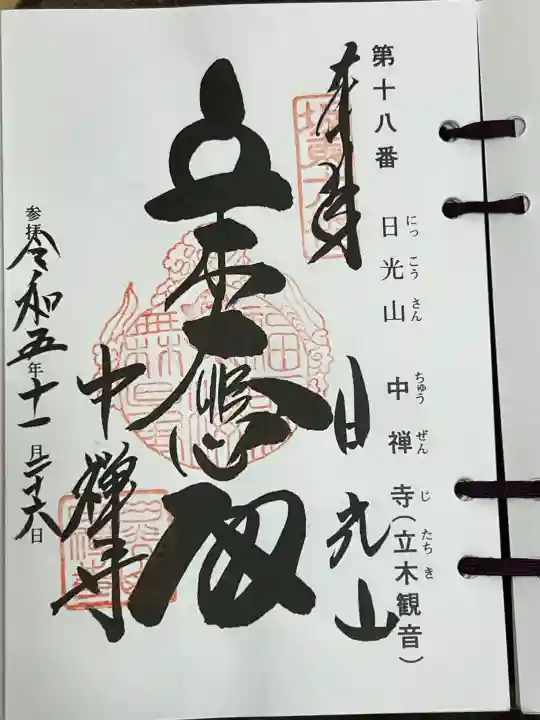 第十八番 日光山 中禅寺(立木観音)
にっこうさん ちゅうぜんじ たちき
奉拝
日光山
立木大悲殿
中禅寺
参拝 令和五年十一月二十六日